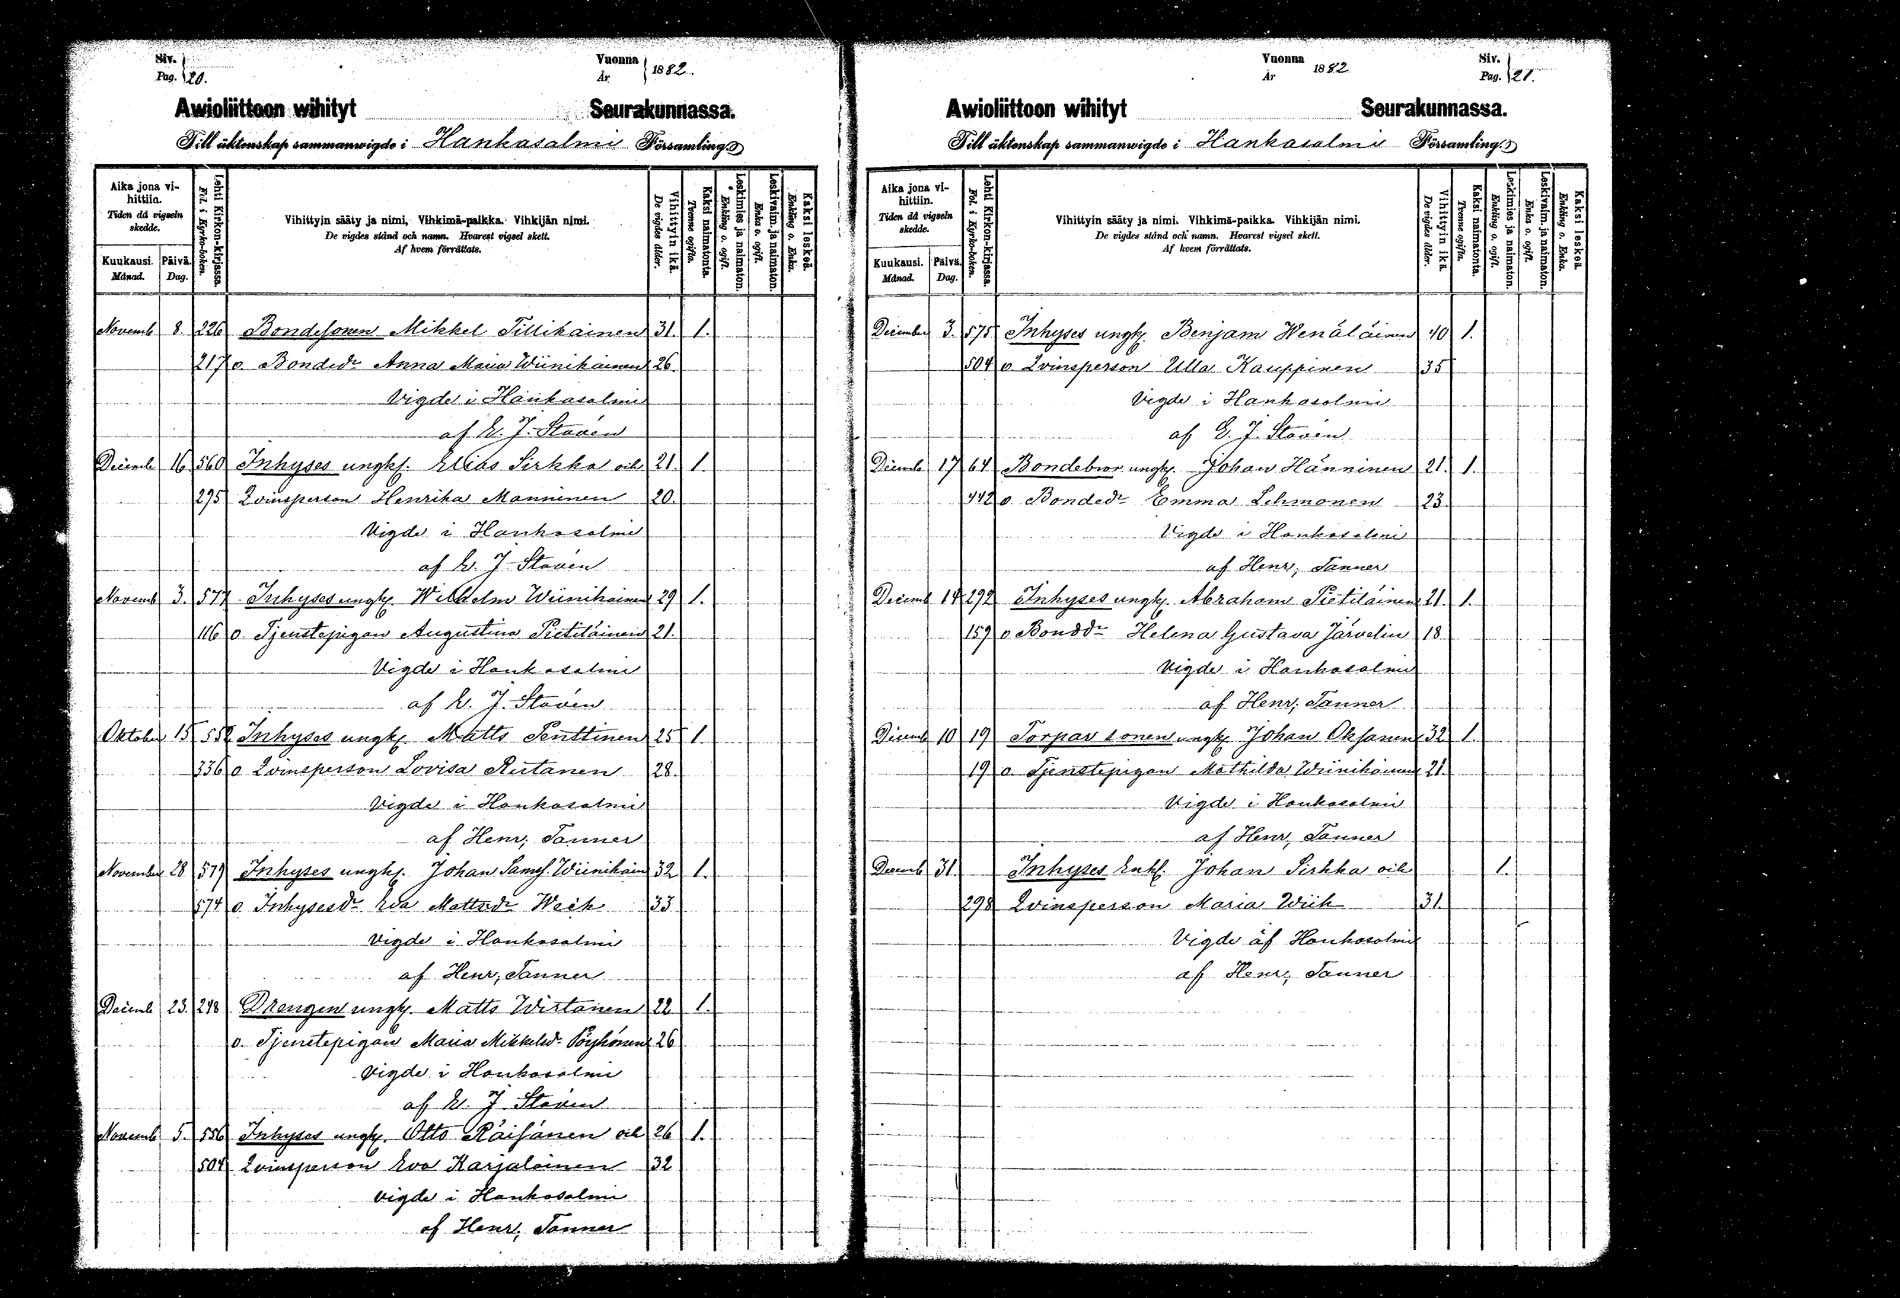 Siv. Pag. 20.
Vuonna År 1882.
Awioliittoon wihityt Seurakunnassa.
Till äktenskap sammanwigde i Hankasalmi Församling
Aika jona vihittiin. Tiden då vigseln skedde.
Kuukausi. Månad.
Päivä. Dag.
Lehti Kirkon-kirjassa. Fol. i Kyrko-boken.
Vihittyin sääty ja nimi. Vihkimä-paikka. Vihkijän nimi.
De vigdes stånd och namn. Hvarest vigsel skett.
Af hvem förrättats.
Vihittyin ikä. De vigdes ålder.
Kaksi naimatonta. Tvenne ogifta.
Leskimies ja naimaton. Enkling o. ogift.
Leskivaim. ja naimaton. Enka o. ogift.
Kaksi leskeä. Enkling o. Enka.
Novemb 8. 226 Bondesonen Mikkel Tillikainen 31. 1.
217 o. Bondedr Anna Maria Wiinikainen 26.
Vigde i Hankasalmi
af E. J. Stavén
Decemb 16 560 Inhyses ungk. Elias Sirkka och 21. 1.
295 Qvinsperson Henrika Manninen 20.
Vigde i Hankasalmi
af E. J. Stavén
Novemb 3. 577 Inhyses ungk. Wilhelm Wiinikainen 29 1.
116 o. Tjenstepigan Augustina Pietiläinen 21.
Vigde i Hankasalmi
af E. J. Stavén
Oktober 15 552 Inhyses ungk. Matts Penttinen 25 1.
336 o Qvinsperson Lovisa Rutanen 28.
Vigde i Hankasalmi
af Henr; Tanner
November 28 579 Inhyses ungk. Johan Samf. Wiinikain 32 1.
574 o. Inhysesdr Eva Mattsdr Weck 33
Vigde i Hankasalmi
af Henr; Tanner
Decemb 23. 248 Drengen ungk. Matts Wirtanen 22 1.
o. Tjenstepigan Maria Mikkelsdr Pöyhönen 26
Vigde i Hankasalmi
af E. J. Stavén
Novemb 5. 556 Inhyses ungk. Otto Räisänen och 26 1.
504 Qvinsperson Eva Karjalainen 32
Vigde i Hankasalmi
af Henr; Tanner
Vuonna År 1882
Siv. Pag. 21.
Awioliittoon wihityt Seurakunnassa.
Till äktenskap sammanwigde i Hankasalmi Församling
Aika jona vihittiin. Tiden då vigseln skedde.
Kuukausi. Månad.
Päivä. Dag.
Lehti Kirkon-kirjassa. Fol. i Kyrko-boken.
Vihittyin sääty ja nimi. Vihkimä-paikka. Vihkijän nimi.
De vigdes stånd och namn. Hvarest vigsel skett.
Af hvem förrättats.
Vihittyin ikä. De vigdes ålder.
Kaksi naimatonta. Tvenne ogifta.
Leskimies ja naimaton. Enkling o. ogift.
Leskivaim. ja naimaton. Enka o. ogift.
Kaksi leskeä. Enkling o. Enka.
December 3. 575 Inhyses ungk. Benjam Wenäläinen 40 1.
504 o Qvinsperson Ulla Kauppinen 35
Vigde i Hankasalmi
af E. J. Stavén
Decemb 17 64 Bondebror ungk. Johan Hänninen 21. 1.
442 o Bondedr Emma Lehmonen 23.
Vigde i Hankasalmi
af Henr; Tanner
Decemb 14 292 Inhyses ungk. Abraham Pietiläinen 21. 1.
159 o Bonddr Helena Gustava Järvelin 18
Vigde i Hankasalmi
af Henr; Tanner
Decemb 10 19 Torparsonen ungk. Johan Oksanen 32 1.
19 o. Tjenstepigan Mathilda Wiinikainen 21.
Vigde i Hankasalmi
af Henr; Tanner
Decemb 31. Inhyses Enkl. Johan Sirkka och 1.
298 Qvinsperson Maria Wiik 31
Vigde af Hankasalmi
af Henr; Tanner